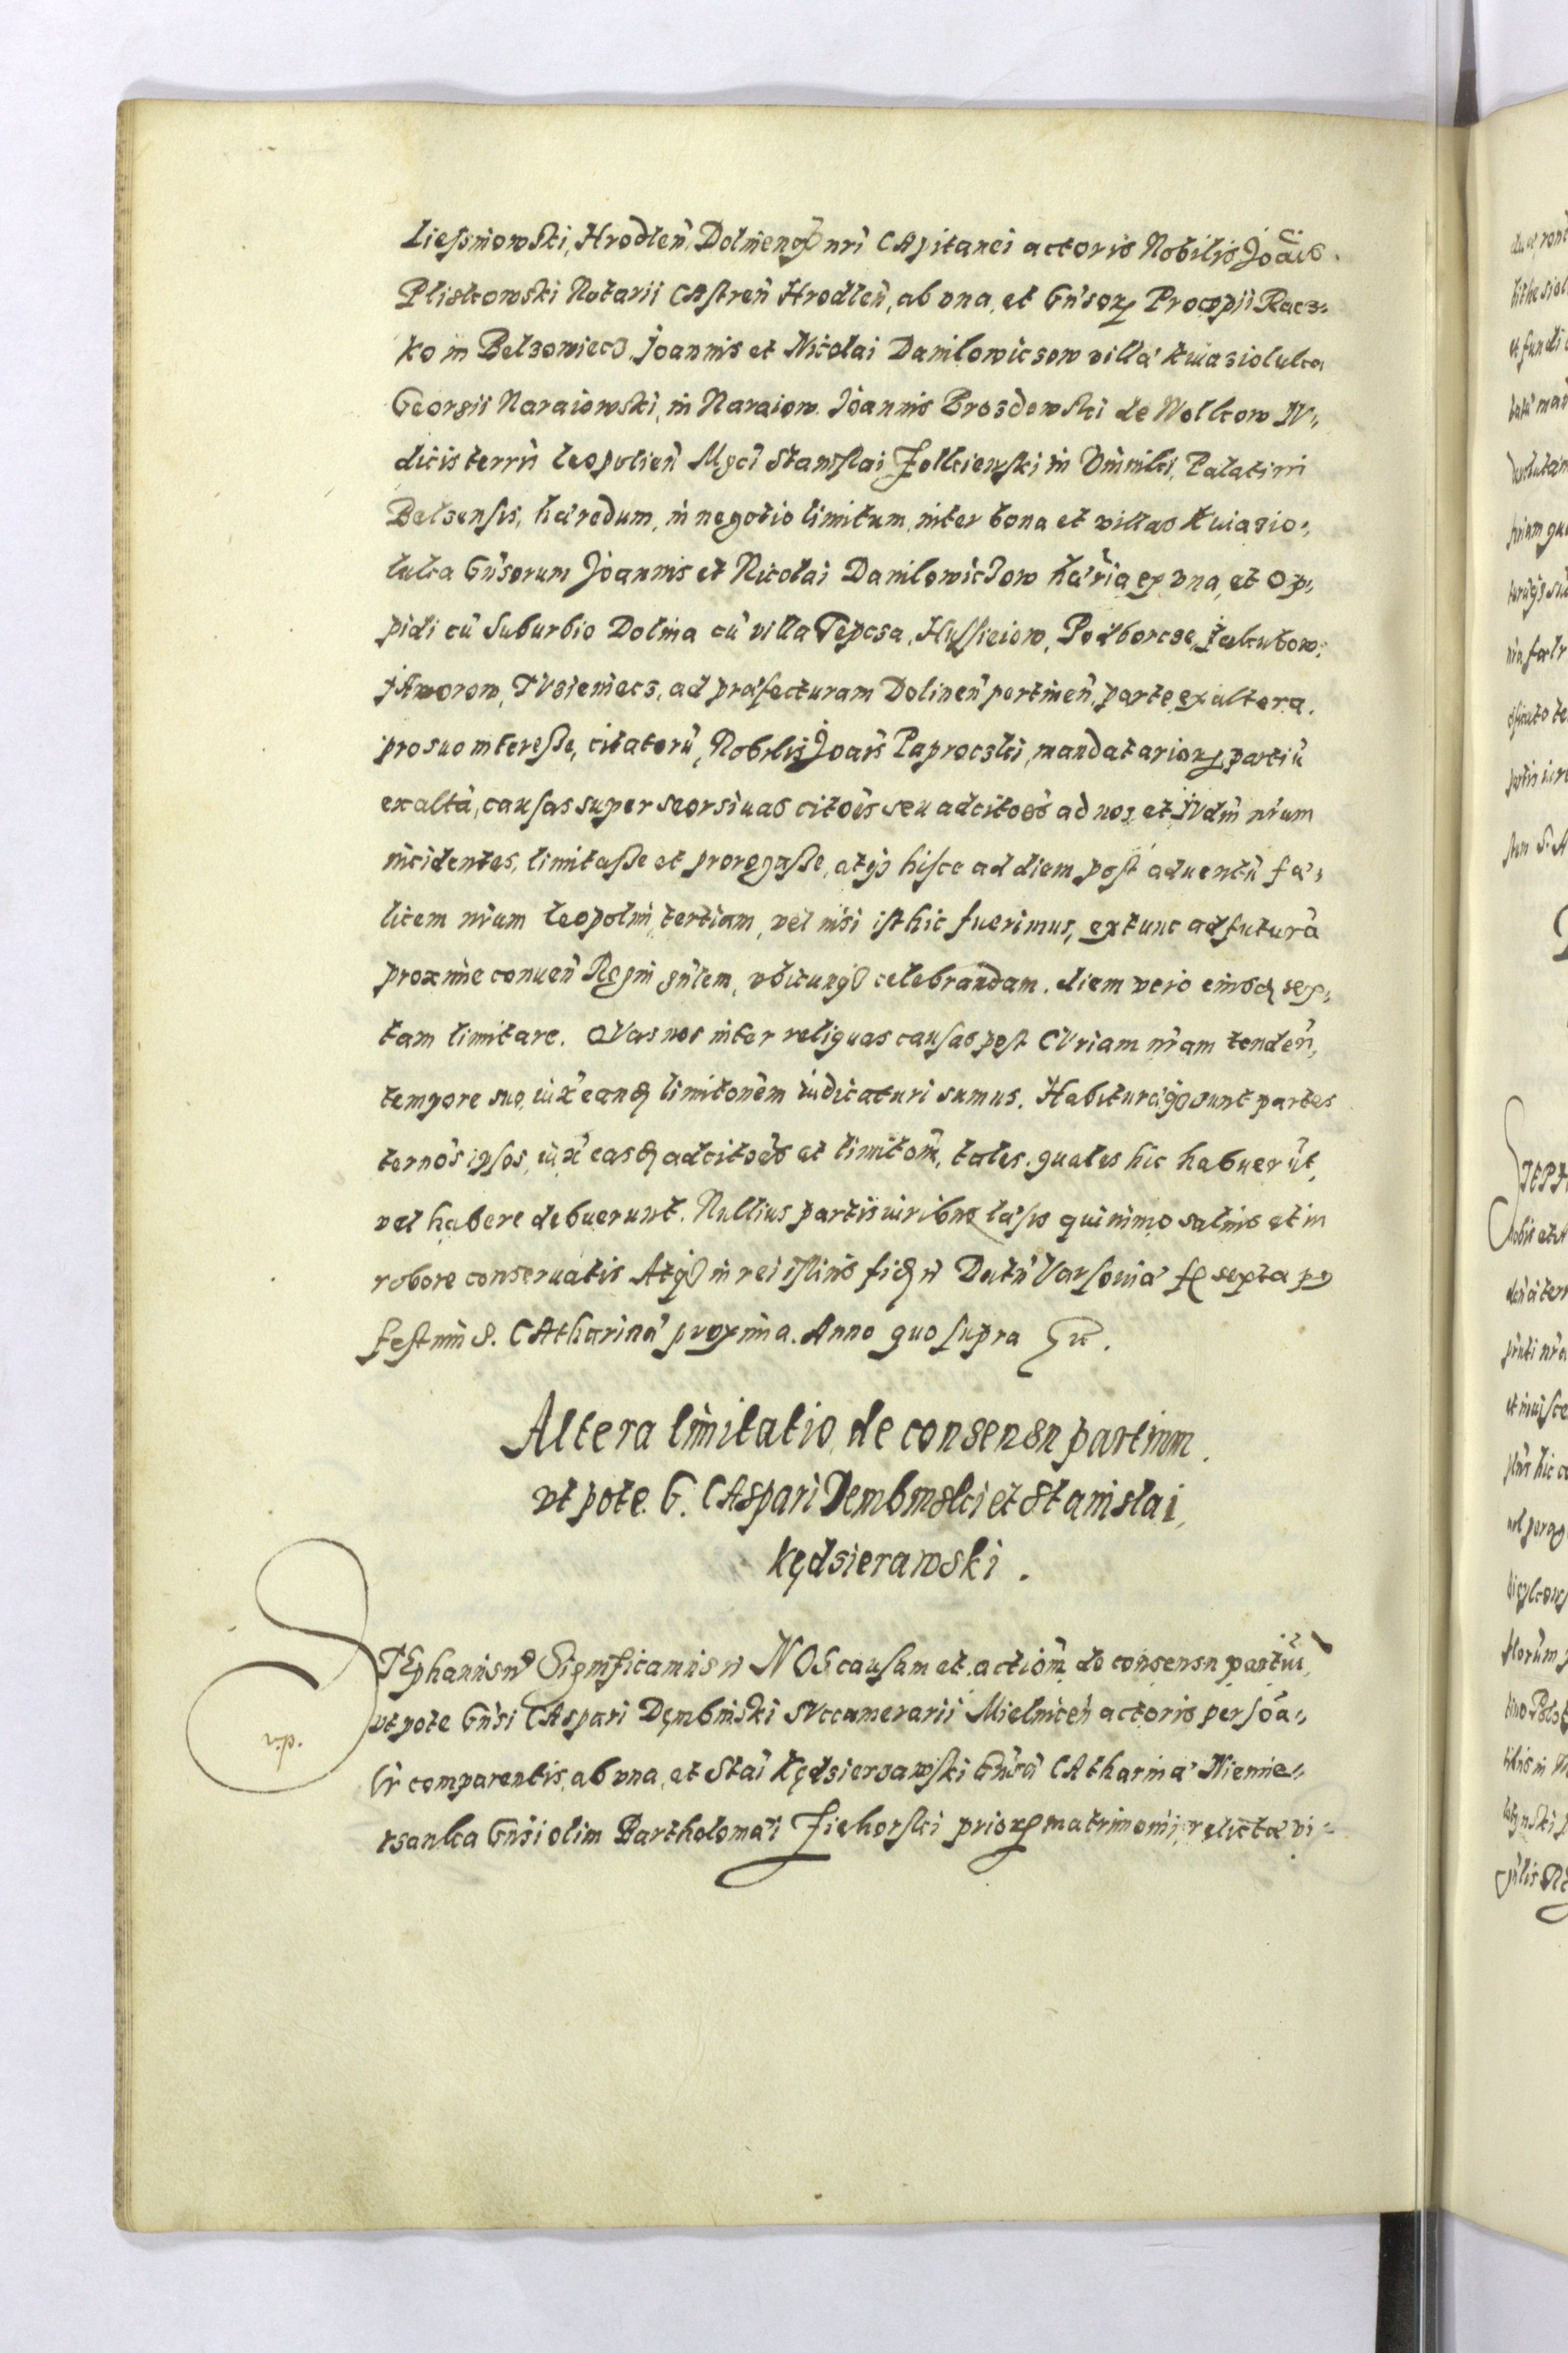 Liessniowski, Hrodlen̄, Dolinenq₃ nr̄i CApitanei actoris Nobilis Joāis.
Pliskowski Notarii CAstren̄ Hrodlen̄, ab vna, et Gn̄sorꝝ Procopii Racz-
ko in Belzowiecz, Joannis et Nicolai Danilowiczow villæ Kniaziolulca
Georgii Naraiowski, in Naraiow. Joannis Brozdowski de Wolkow IV-
dicis terrn̄ leopolien̄ Mgc̄i Stanislai Zolkiewski in Vinniki, Palatini
Belzensis, hæredum, in negotio limitum, inter bona et villas Kniazio-
lulca Gn̄sorum Joannis et Nicolai Danilowiczow hær̄ia ex vna, et Op-
pidi cū Suburbio Dolina cū villa Tepcza, Hussieiow, Podborcze, Jakubow,
JAworow, TVzieniecz, ad præfecturam Dolinen̄ pertinen̄, parte ex altera.
pro suo interesse, citatorū, Nobilis Joan̄s Paproczki, mandatariorꝝ partiū
ex altā, causas super seorsiuas citōīs seu adcitōēs ad nos, et IVdm̄ nr̄um
incidentes, limitasse et prorogasse, atq₃ hisce ad diem post aduentū fæ-
licem nr̄um leopolim tertiam, vel nisi isthic fuerimus, extunc ad futurā
proxime conuen̄ Regni gn̄lem, vbicunq₃ celebrandam. diem vero eiusdꝫ sex-
tam limitare. QVas nos inter reliquas causas post CVriam nr̄am tenden̄,
tempore suo, iux̄ eandꝫ limitōnem iudicaturi sumus. Habituræq₃ sunt partes
ternōs ipsos, iux̄ easdꝫ adcitōēs et limitōm̄, tales, quales hic habuerūt,
vel habere debuerunt. Nullius partis iuribus læsis quinimo saluis et in
robore conseruatis Atq₃ in rei istius fidꝫ n̄ Datū Varsouiæ f₃ sexta pꝰ
festum S. CAtharinæ proxima. Anno quo supra &c.
Altera limitatio, de consensu partium.
vt pote. G. CAspari Dembinski et Stanislai,
Kędzierawski.
STEphanus n̄ Significamus n̄ NOS causam et actiōm̄ de consensu partiū,
vt pote Gn̄si CAspari Dęmbinski SVccamerarii Mielnicen̄ actoris persōa-
lr̄ comparentis, ab vna, et Stāi Kędzierzawski Gn̄sæ CAtharinæ Niemie-
rzanka Gn̄si olim Bartholomæi Ziehorski priorꝝ matrimonii, relictæ vi-